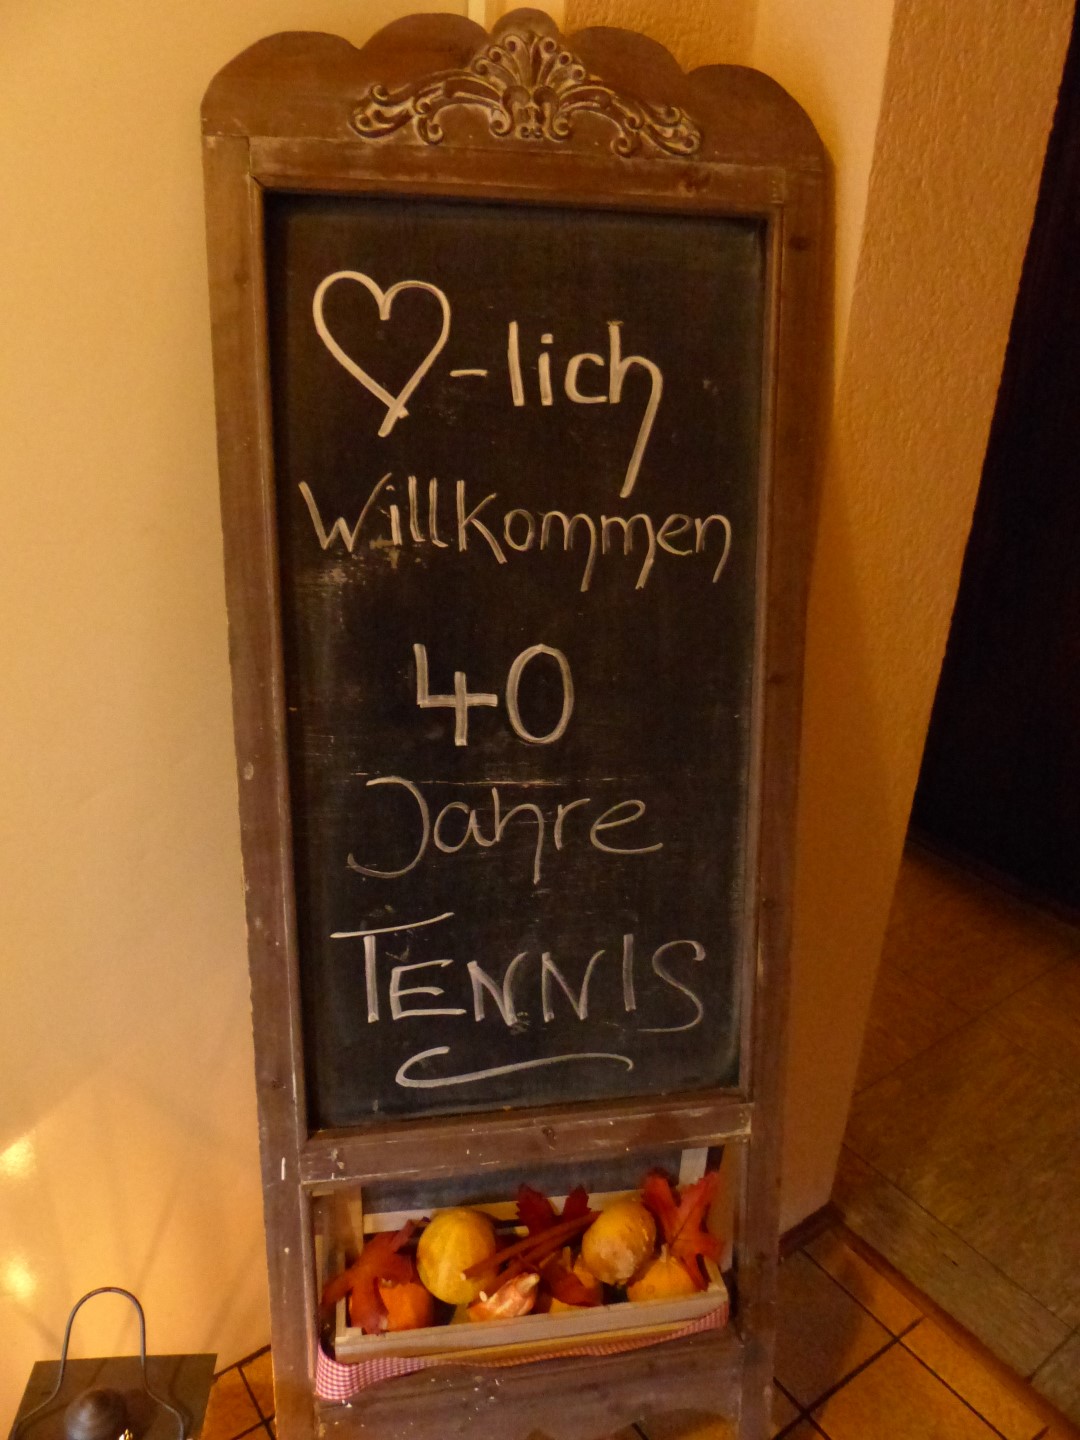 ♡-lich
Willkommen
40
Jahre
TENNIS